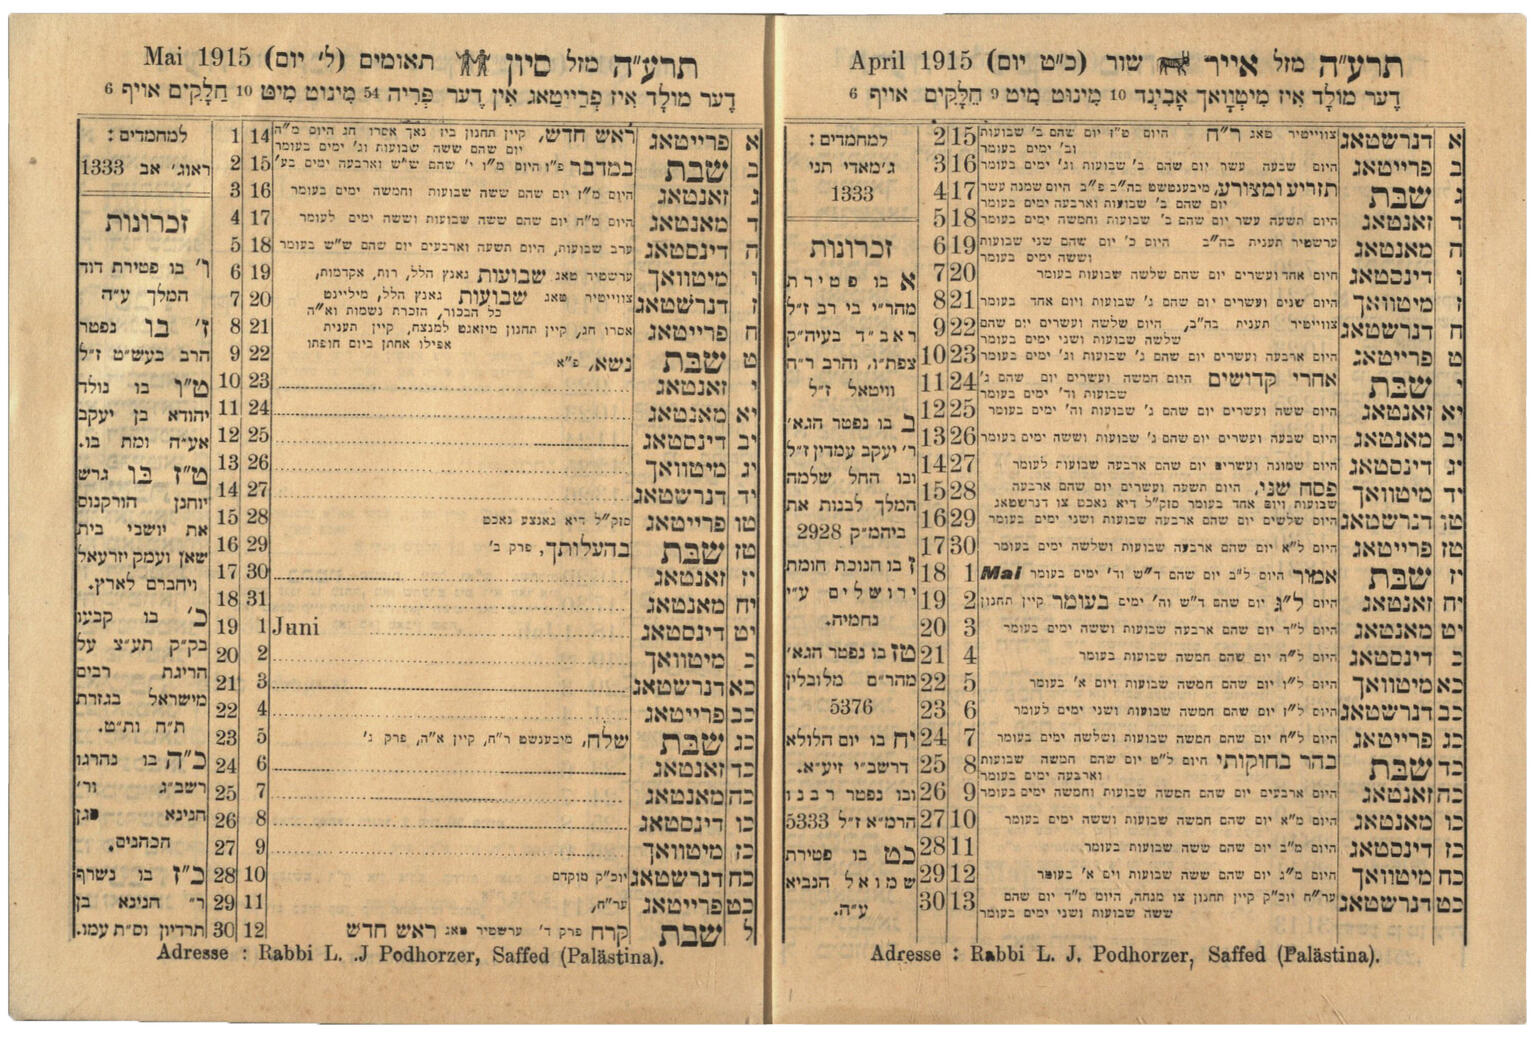 תרע״ה מזל אייר שור (כ״ט יום) April 1915
דֶער מוֹלָד אִיז מִיטְוָואךְ אָבֶינְד 10 מִינוּט מִיט 9 חֵלָקִים אויף 6
א דנרשטאג צווייטיר טאג ר״ח היום ט״ז יום שהם ב׳ שבועות 15 2
וב׳ ימים בעומר
ב פרייטאג היום שבעה עשר יום שהם ב׳ שבועות וג׳ ימים בעומר 16 3
ג שבת תזריע ומצורע, מיבענטשט בה״ב פ״ב היום שמנה עשר 17 4
יום שהם ב׳ שבועות וארבעה ימים בעומר
ד זאנטאג היום תשעה עשר יום שהם ב׳ שבועות וחמשה ימים בעומר 18 5
ה מאנטאג ערשטיר תענית בה״ב היום כ׳ יום שהם שני שבועות 19 6
וששה ימים בעומר
ו דינסטאג היום אחד ועשרים יום שהם שלשה שבועות בעומר 20 7
ז מיטוואך היום שנים ועשרים יום שהם ג׳ שבועות ויום אחד בעומר 21 8
ח דנרשטאג צווייטיר תענית בה״ב, היום שלשה ועשרים יום שהם 22 9
שלשה שבועות ושני ימים בעומר
ט פרייטאג היום ארבעה ועשרים יום שהם ג׳ שבועות וג׳ ימים בעומר 23 10
י שבת אחרי קדושים היום חמשה ועשרים יום שהם ג׳ 24 11
שבועות וד׳ ימים בעומר
יא זאנטאג היום ששה ועשרים יום שהם ג׳ שבועות וה׳ ימים בעומר 25 12
יב מאנטאג היום שבעה ועשרים יום שהם ג׳ שבועות וששה ימים בעומר 26 13
יג דינסטאג היום שמונה ועשרים יום שהם ארבעה שבועות לעומר 27 14
יד מיטוואך פסח שני, היום תשעה ועשרים יום שהם ארבעה 28 15
שבועות ויום אחד בעומר סזק״ל דיא נאכט צו דנרשטאג
טו דנרשטאג היום שלשים יום שהם ארבעה שבועות ושני ימים בעומר 29 16
טז פרייטאג היום ל״א יום שהם ארבעה שבועות ושלשה ימים בעומר 30 17
יז שבת אמור היום ל״ב יום שהם ד״ש וד׳ ימים בעומר Mai 1 18
יח זאנטאג היום ל״ג יום שהם ד״ש וה׳ ימים בעומר קיין תחנון 2 19
יט מאנטאג היום ל״ד יום שהם ארבעה שבועות וששה ימים בעומר 3 20
כ דינסטאג היום ל״ה יום שהם חמשה שבועות בעומר 4 21
כא מיטוואך היום ל״ו יום שהם חמשה שבועות ויום א׳ בעומר 5 22
כב דנרשטאג היום ל״ז יום שהם חמשה שבועות ושני ימים לעומר 6 23
כג פרייטאג היום ל״ח יום שהם חמשה שבועות ושלשה ימים בעומר 7 24
כד שבת בהר בחוקותי היום ל״ט יום שהם חמשה שבועות 8 25
וארבעה ימים בעומר
כה זאנטאג היום ארבעים יום שהם חמשה שבועות וחמשה ימים בעומר 9 26
כו מאנטאג היום מ״א יום שהם חמשה שבועות וששה ימים בעומר 10 27
כז דינסטאג היום מ״ב יום שהם ששה שבועות בעומר 11 28
כח מיטוואך היום מ״ג יום שהם ששה שבועות ויום א׳ בעומר 12 29
כט דנרשטאג ער״ח יוכ״ק קיין תחנון צו מנחה, היום מ״ד יום שהם 13 30
ששה שבועות ושני ימים בעומר
למחמדים:
ג׳מאדי תני
1333
זכרונות
א בו פטירת
מהר״י בי רב ז״ל
ראב״ד בעיה״ק
צפת״ו, והרב ר״ח
וויטאל ז״ל
ב בו נפטר הגא׳
ר׳ יעקב עמדין ז״ל
ובו החל שלמה
המלך לבנות את
ביהמ״ק 2928
ז בו חנוכת חומת
ירושלים ע״י
נחמיה.
טז בו נפטר הגא׳
מהר״ם מלובלין
5376
יח בו יום הלולא
דרשב״י זיע״א.
ובו נפטר רבנו
הרמ״א ז״ל 5333
כט בו פטירת
שמואל הנביא
ע״ה.
Adresse : Rabbi L. J. Podhorzer, Saffed (Palästina).
תרע״ה מזל סיון תאומים (ל׳ יום) Mai 1915
דֶער מוֹלָד אִיז פְרֵייטַאג אִין דֶער פְרִיה 54 מִינוּט מִיט 10 חַלָקִים אויף 6
א פרייטאג ראש חדש, קיין תחנון ביז נאך אסרו חג היום מ״ה 14 1
יום שהם ששה שבועות וג׳ ימים בעומר
ב שבת במדבר פ״ו היום מ״ו י׳ שהם ש״ש וארבעה ימים בע׳ 15 2
ג זאנטאג היום מ״ז יום שהם ששה שבועות וחמשה ימים בעומר 16 3
ד מאנטאג היום מ״ח יום שהם ששה שבועות וששה ימים לעומר 17 4
ה דינסטאג ערב שבועות, היום תשעה וארבעים יום שהם ש״ש בעומר 18 5
ו מיטוואך ערשטיר טאג שבועות גאנץ הלל, רות, אקדמות, 19 6
ז דנרשטאג צווייטיר טאג שבועות גאנץ הלל, מיליינט 20 7
כל הבכור, הזכרת נשמות וא״ה
ח פרייטאג אסרו חג, קיין תחנון מיזאגט למנצח, קיין תענית 21 8
אפילו אחתן ביום חופתו
ט שבת נשא, פ״א 22 9
י זאנטאג 23 10
יא מאנטאג 24 11
יב דינסטאג 25 12
יג מיטוואך 26 13
יד דנרשטאג 27 14
טו פרייטאג סזק״ל דיא גאנצע נאכט 28 15
טז שבת בהעלותך, פרק ב׳ 29 16
יז זאנטאג 30 17
יח מאנטאג 31 18
יט דינסטאג Juni 1 19
כ מיטוואך 2 20
כא דנרשטאג 3 21
כב פרייטאג 4 22
כג שבת שלח, מיבענשט ר״ח, קיין א״ה, פרק ג׳ 5 23
כד זאנטאג 6 24
כה מאנטאג 7 25
כו דינסטאג 8 26
כז מיטוואך 9 27
כח דנרשטאג יוכ״ק מוקדם 10 28
כט פרייטאג ער״ח, 11 29
ל שבת קרח פרק ד׳ ערשטיר טאג ראש חדש 12 30
למחמדים:
ראוג׳ אב 1333
זכרונות
ו׳ בו פטירת דוד
המלך ע״ה
ז׳ בו נפטר
הרב בעש״ט ז״ל
ט״ו בו נולד
יהודא בן יעקב
אע״ה ומת בו.
ט״ז בו גרש
יוחנן הורקנוס
את יושבי בית
שאן ועמק יזרעאל
ויחברם לארץ.
כ׳ בו קבעו
בק״ק תע״צ על
הריגת רבים
מישראל בגזרת
ת״ח ות״ט.
כ״ה בו נהרגו
רשב״ג ור׳
חנינא סגן
הכהנים.
כ״ז בו נשרף
ר״ חנינא בן
תרדיון וס״ת עמו.
Adresse : Rabbi L. .J Podhorzer, Saffed (Palästina).